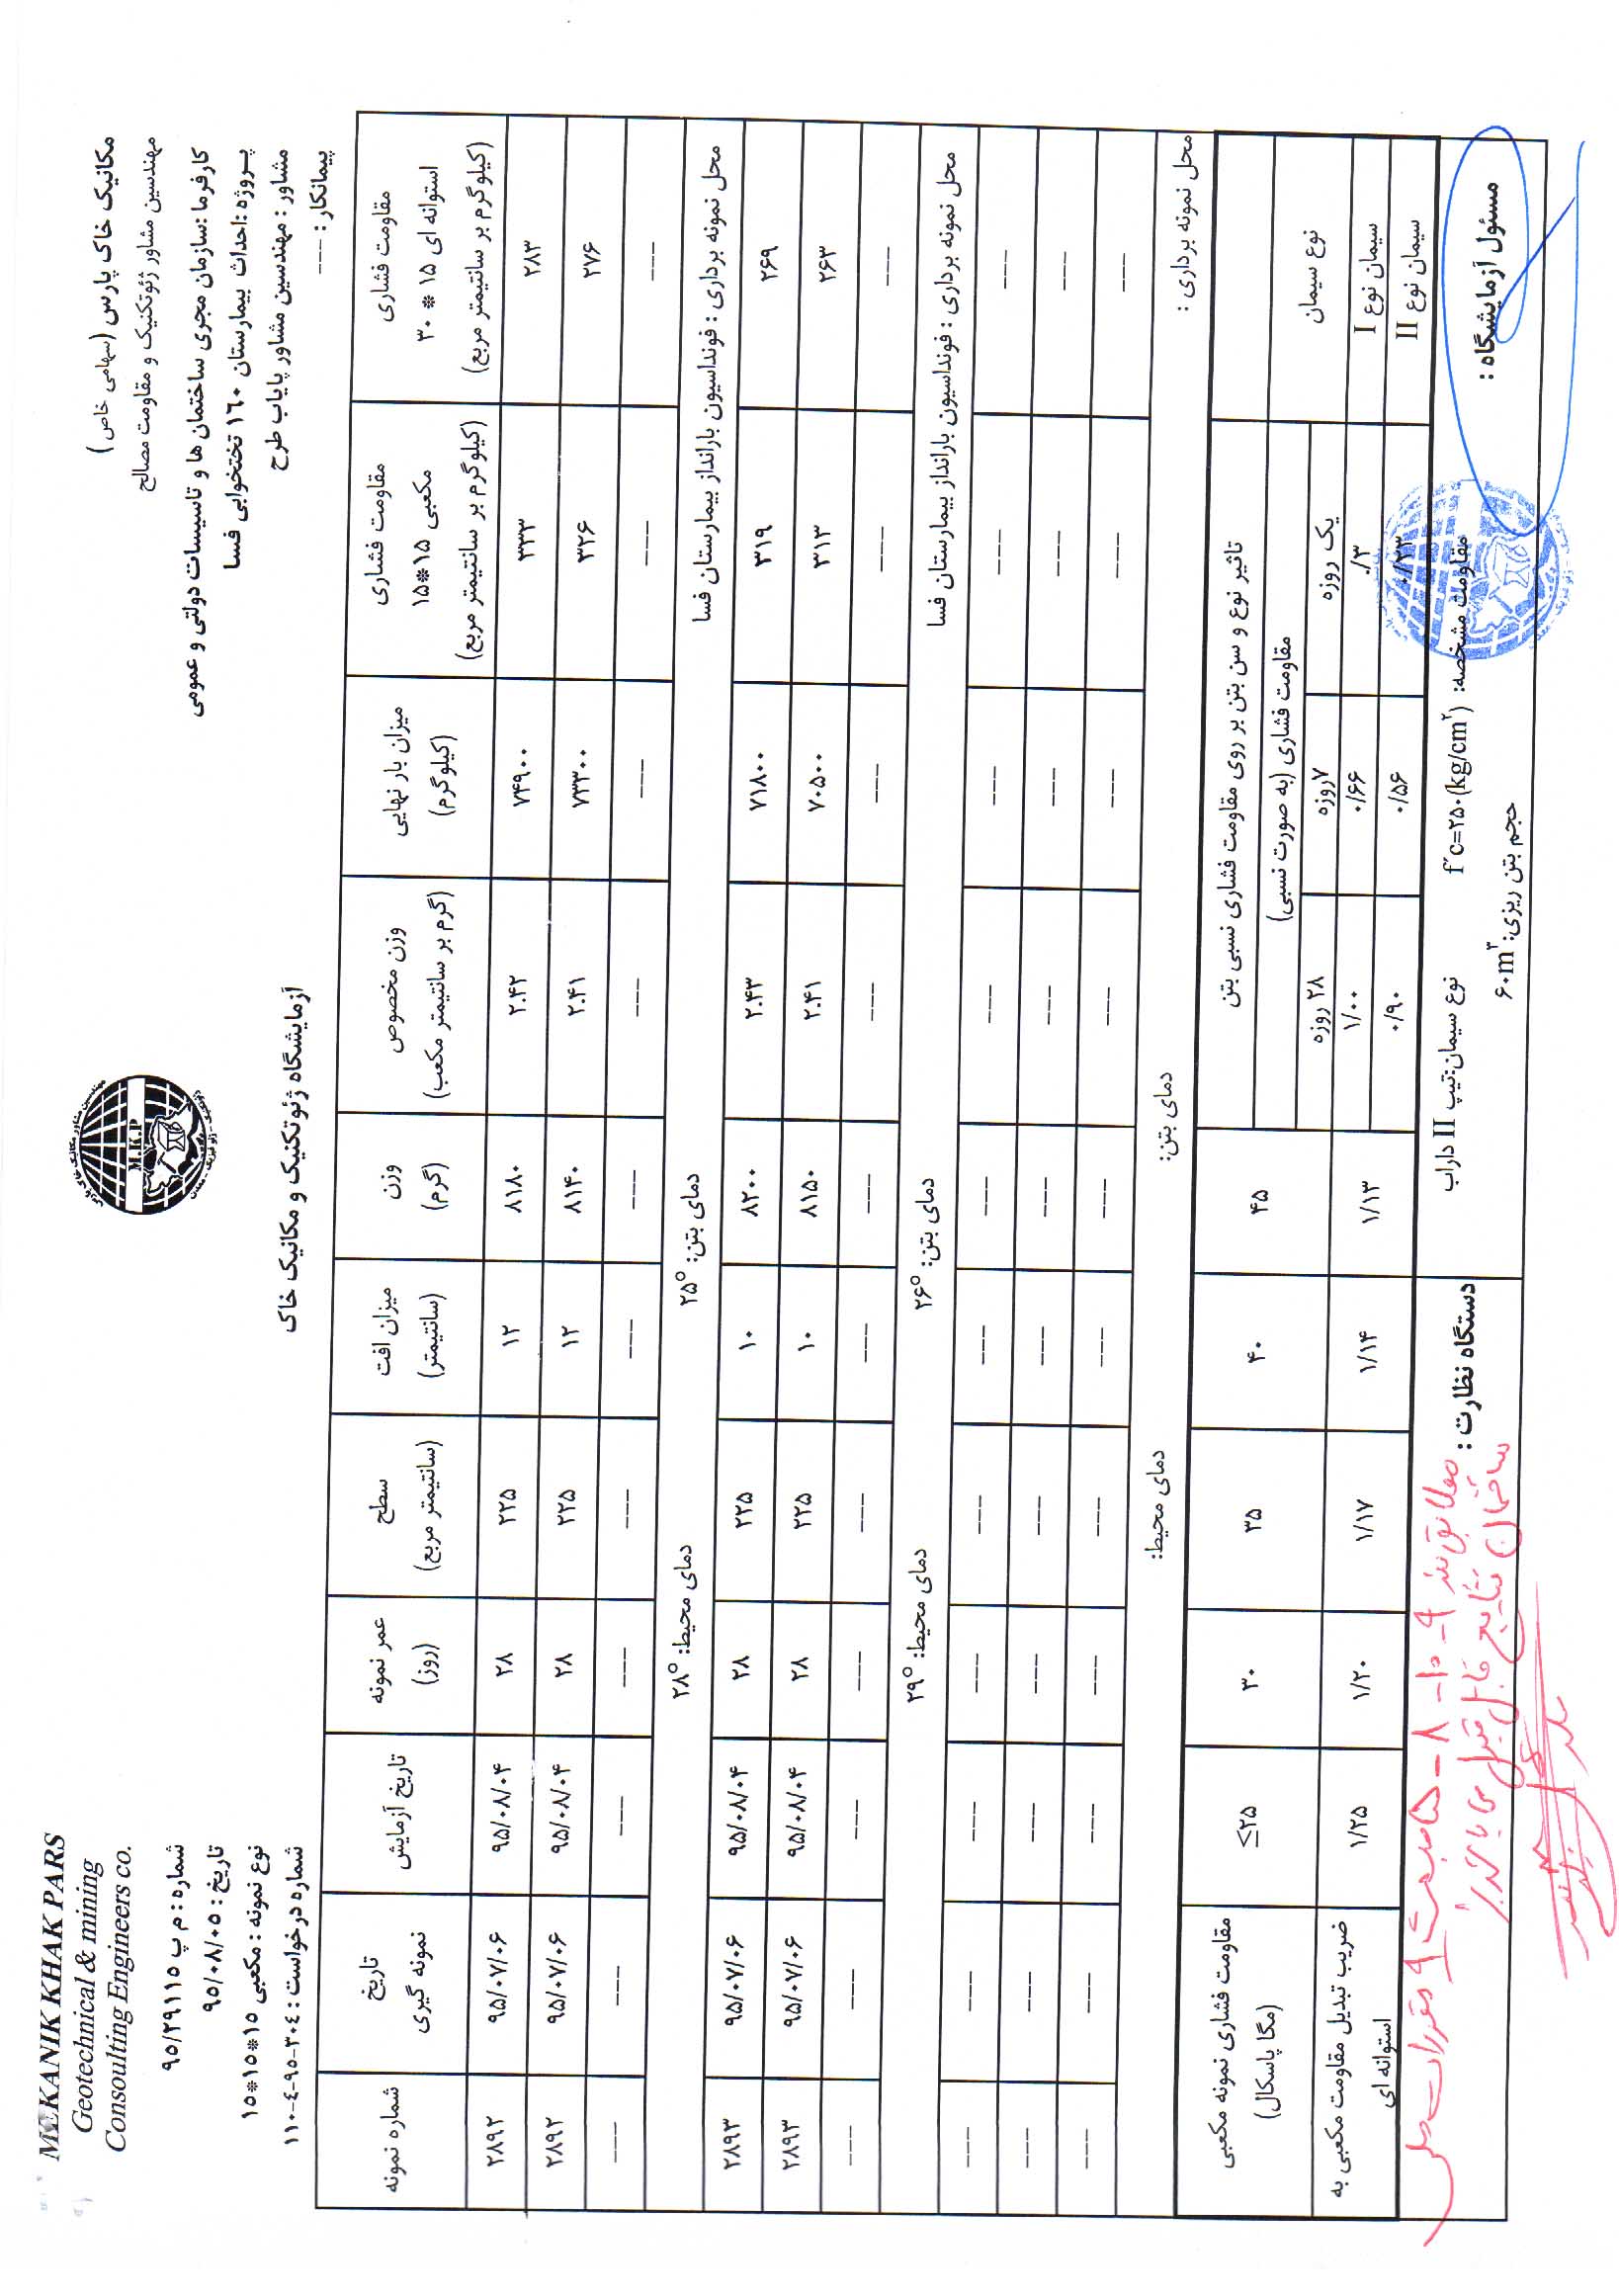 MEKANIK KHAK PARS
Geotechnical & mining
Consoulting Engineers co.
مکانیک خاک پارس (سهامی خاص)
مهندسین مشاور ژئوتکنیک و مقاومت مصالح
M.K.P
شماره : م پ ۹۵/۲۹۱۱۵
تاریخ : ۹۵/۰۸/۰۵
نوع نمونه : مکعبی ۱۵*۱۵*۱۵
شماره درخواست : ۳۰۴-۹۵-۴-۱۱۰
آزمایشگاه ژئوتکنیک و مکانیک خاک
کارفرما :سازمان مجری ساختمان ها و تاسیسات دولتی و عمومی
پروژه :احداث بیمارستان ۱۶۰ تختخوابی فسا
مشاور : مهندسین مشاور پایاب طرح
پیمانکار : ---
شماره نمونه | تاریخ نمونه گیری | تاریخ آزمایش | عمر نمونه (روز) | سطح (سانتیمتر مربع) | میزان افت (سانتیمتر) | وزن (گرم) | وزن مخصوص (گرم بر سانتیمتر مکعب) | میزان بار نهایی (کیلوگرم) | مقاومت فشاری مکعبی ۱۵*۱۵ (کیلوگرم بر سانتیمتر مربع) | مقاومت فشاری استوانه ای ۱۵ * ۳۰ (کیلوگرم بر سانتیمتر مربع)
۲۸۹۲ | ۹۵/۰۷/۰۶ | ۹۵/۰۸/۰۴ | ۲۸ | ۲۲۵ | ۱۲ | ۸۱۸۰ | ۲.۴۲ | ۷۴۹۰۰ | ۳۳۳ | ۲۸۳
۲۸۹۲ | ۹۵/۰۷/۰۶ | ۹۵/۰۸/۰۴ | ۲۸ | ۲۲۵ | ۱۲ | ۸۱۴۰ | ۲.۴۱ | ۷۳۳۰۰ | ۳۲۶ | ۲۷۶
--- | --- | --- | --- | --- | --- | --- | --- | --- | --- | ---
محل نمونه برداری : فونداسیون بارانداز بیمارستان فسا دمای بتن: ۲۵° دمای محیط: ۲۸°
۲۸۹۳ | ۹۵/۰۷/۰۶ | ۹۵/۰۸/۰۴ | ۲۸ | ۲۲۵ | ۱۰ | ۸۲۰۰ | ۲.۴۳ | ۷۱۸۰۰ | ۳۱۹ | ۲۶۹
۲۸۹۳ | ۹۵/۰۷/۰۶ | ۹۵/۰۸/۰۴ | ۲۸ | ۲۲۵ | ۱۰ | ۸۱۵۰ | ۲.۴۱ | ۷۰۵۰۰ | ۳۱۳ | ۲۶۳
--- | --- | --- | --- | --- | --- | --- | --- | --- | --- | ---
محل نمونه برداری : فونداسیون بارانداز بیمارستان فسا دمای بتن: ۲۶° دمای محیط: ۲۹°
--- | --- | --- | --- | --- | --- | --- | --- | --- | --- | ---
--- | --- | --- | --- | --- | --- | --- | --- | --- | --- | ---
--- | --- | --- | --- | --- | --- | --- | --- | --- | --- | ---
محل نمونه برداری : دمای بتن: دمای محیط:
مقاومت فشاری نمونه مکعبی (مگا پاسکال) | ≤۲۵ | ۳۰ | ۳۵ | ۴۰ | ۴۵
ضریب تبدیل مقاومت مکعبی به استوانه ای | ۱/۲۵ | ۱/۲۰ | ۱/۱۷ | ۱/۱۴ | ۱/۱۳
تاثیر نوع و سن بتن بر روی مقاومت فشاری نسبی بتن
نوع سیمان | مقاومت فشاری (به صورت نسبی)
یک روزه | ۷روزه | ۲۸ روزه
سیمان نوع I | ۰/۳ | ۰/۶۶ | ۱/۰۰
سیمان نوع II | ۰/۲۳ | ۰/۵۶ | ۰/۹۰
مقاومت مشخصه: f'c=۲۵۰(kg/cm۲) نوع سیمان:تیپ II داراب
حجم بتن ریزی: ۶۰m۳
مسئول آزمایشگاه :
دستگاه نظارت :
مطابق بند ۹-۱۰-۸-۵ مبحث ۹ مقررات ملی
ساختمان نتایج قابل قبول می باشد.